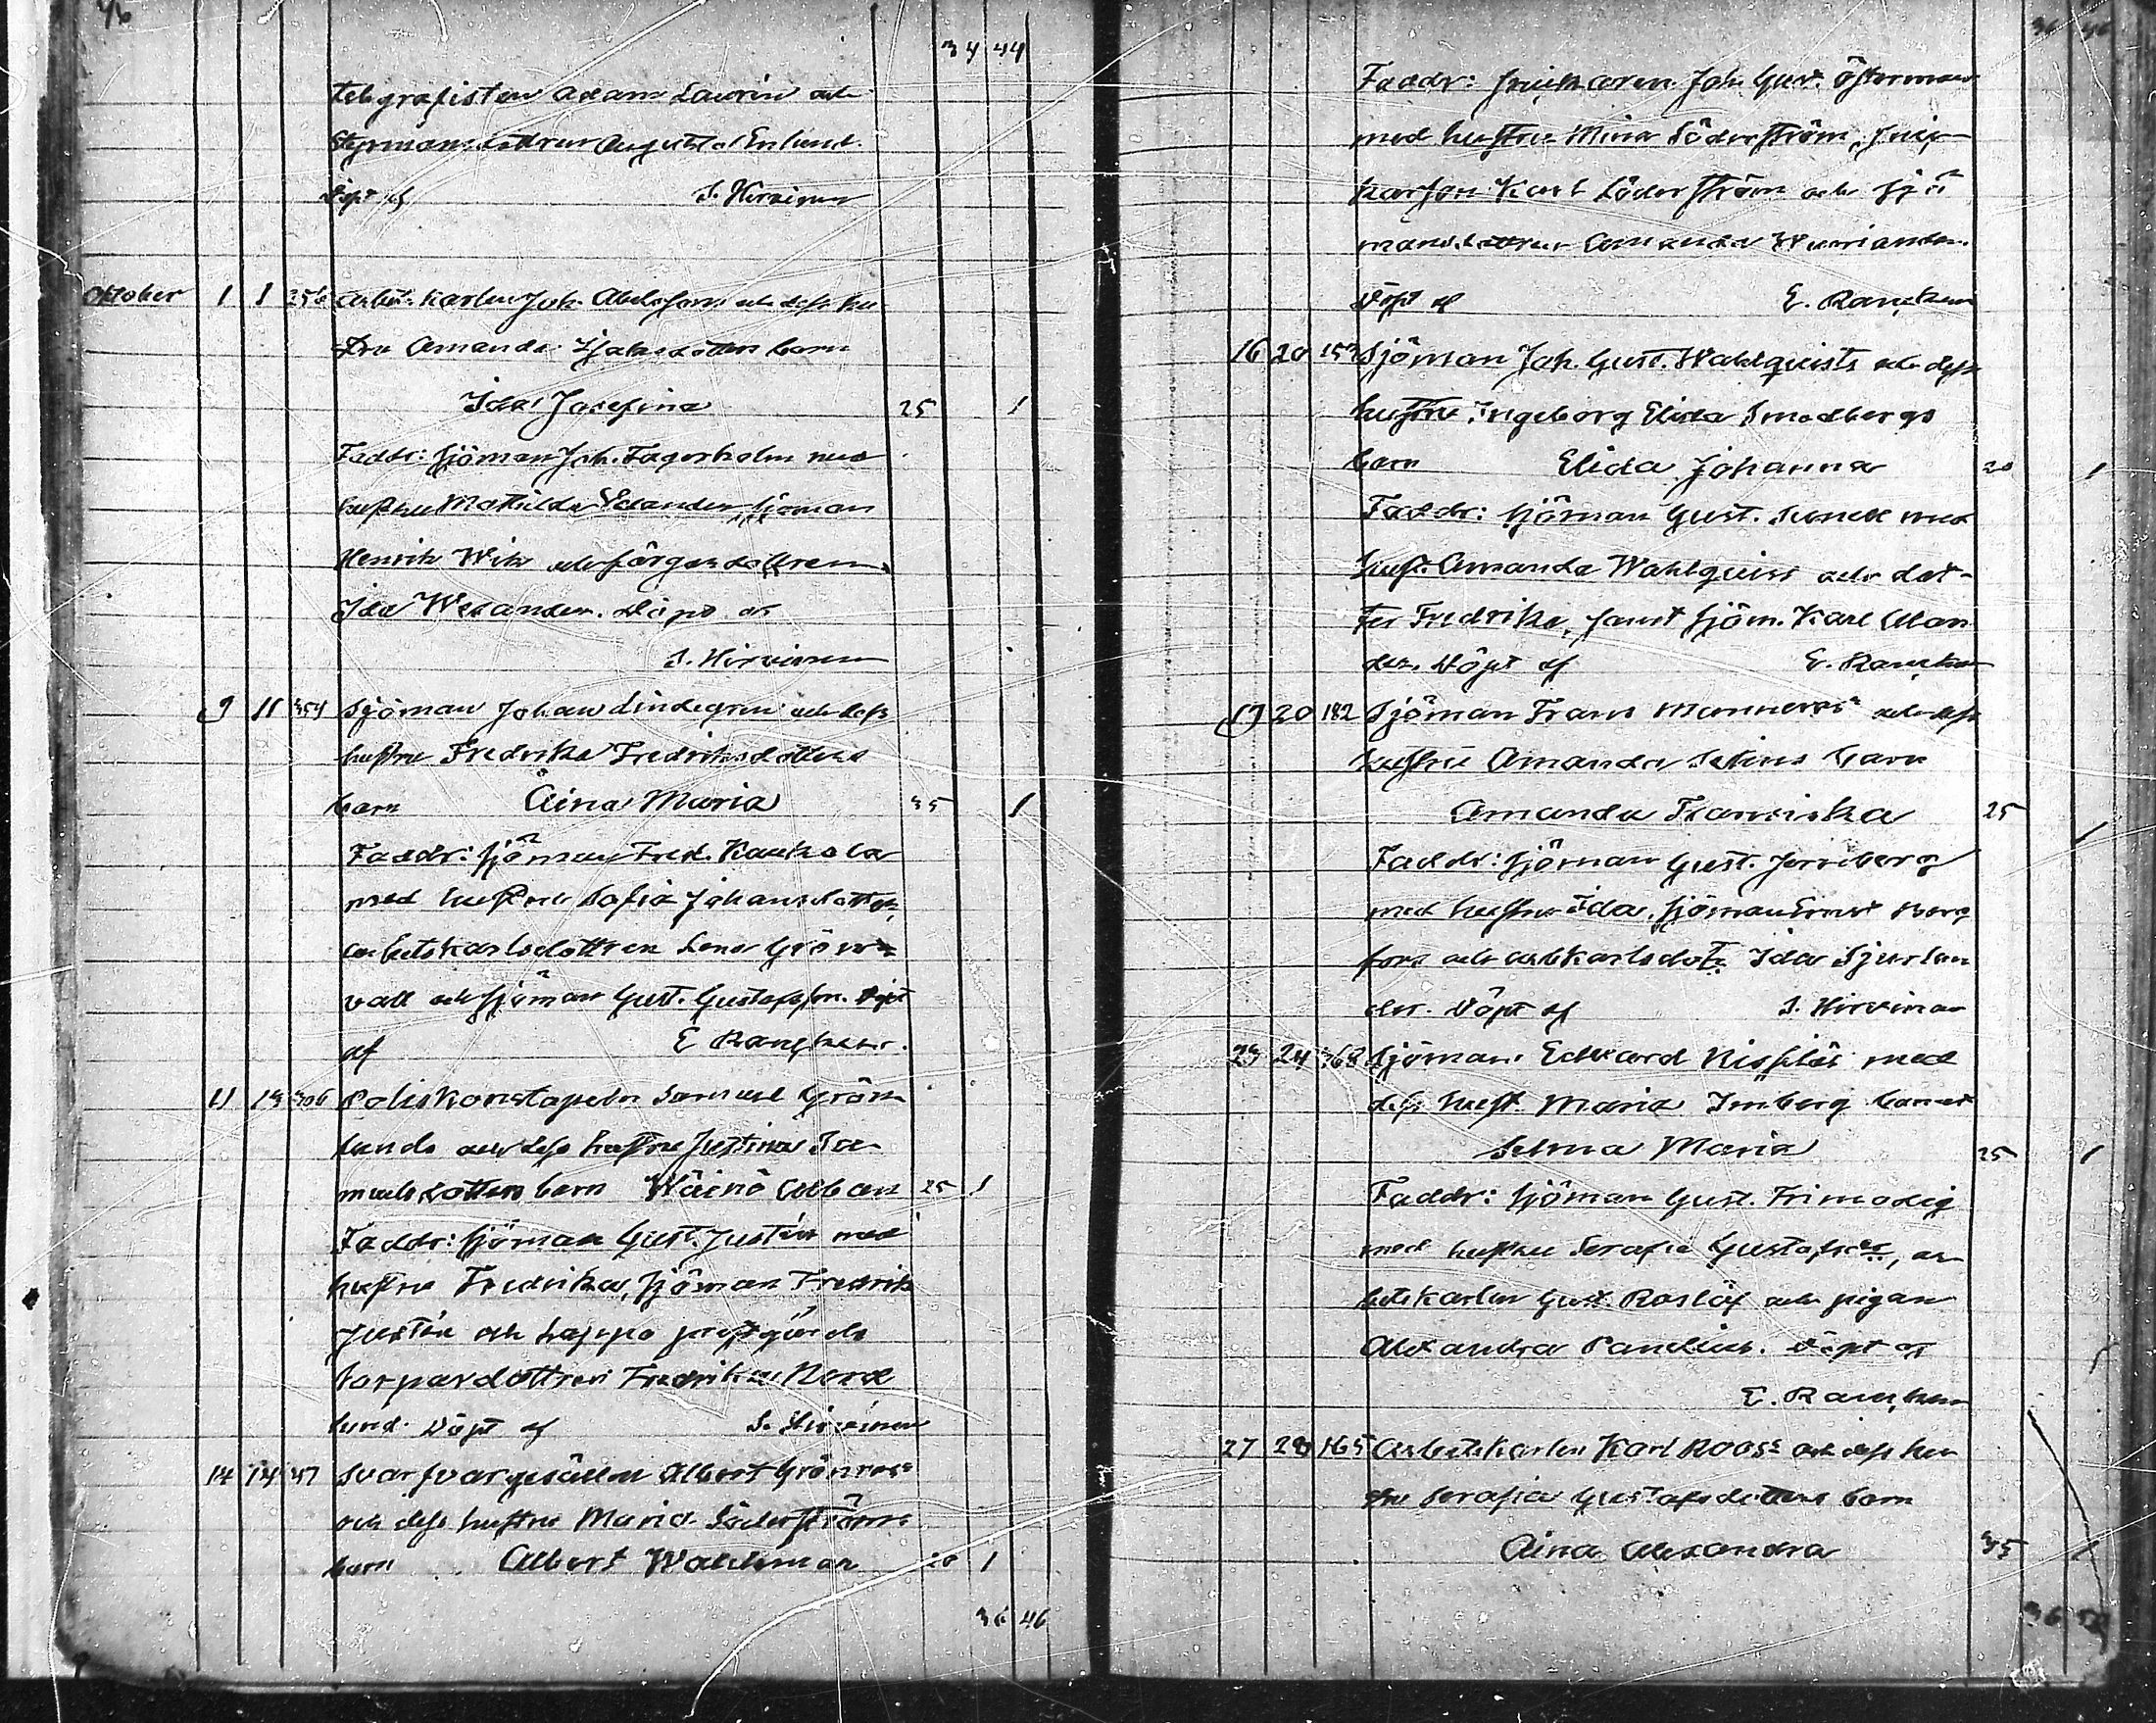 34 44
telegrafisten Adam Laurin och
Styrmansdottren Augusta Enlund.
Döpt af S. Hirvinen
Oktober 1 1 256 Arbets karlen Joh. Abelsson och dess hu
stru Amanda dotters barn
Ida Josefina 25 1
Faddr: sjöman Joh. Fagerholm med
hustru Mathilda sjöman
Henrik Wik och färgaredottren
Ida Welander. Döpt af
S. Hirvinen
9 11 354 Sjöman Johan Lindegren och dess
hustru Fredrika Fredriksdotters
barn Aina Maria 35 1
Faddr: sjöman Fred. Kaukola
med hustru Sofia Johansdotter,
arbetskarlsdottren Lena Grön
vall och sjöman Gust. Gustafsson. Döpt
af E Rancken.
11 13 306 Poliskonstapeln Samuel Grön
lunds och dess hustru Justina Sa
muelsdotters barn Wäinö Alban 25 1
Faddr: sjöman Gust. Justén med
hustru Fredrika, sjöman Fredrik
Justén och Lappo prestgårds
torpardottren Fredrika Nord
lund. Döpt af S. Hirvinen
14 14 47 Svarfvargesällen Albert Grönroos
och dess hustru Maria Söderströms
barn Albert Waldemar 20 1
36 46
36 46
Faddr: Joh. Gust. Österman
med hustru Mina Söderström,
karson Karl Söderström och sjö
mansdottren Amanda
Döpt af E. Rancken
16 20 157 Sjöman Joh. Gust. Wahlquists och dess
hustru Ingeborg Elida Smedbergs
barn Elida Johanna 20 1
Faddr: sjöman Gust. med
hust. Amanda Wahlquist och dot-
ter Fredrika, samt sjöm. Karl Alan
der. Döpt af E. Rancken
19 20 182 Sjöman Frans och dess
hustru Amanda barn
Amanda Franciska 25 1
Faddr: sjöman Gust.
med hustru Ida, sjöman Ernst Berg
fors och arbkarlsdotr. Ida Sjurlan
der. Döpt af S. Hirvinen
23 24 368 Sjöman Edvard med
dess hust. Maria Imberg barnet
Selma Maria 25 1
Faddr: sjöman Gust. Frimodig
med hustru Serafia Gustafsdr, ar
betskarlen Gust. Roslöf och pigan
Alexandra Pandelin. Döpt af
E. Rancken
27 28 165 Arbetskarlen Karl Roos och dess hu
stru Serafia Gustafsdotters barn
Aina Alexandra 35 1
36 50